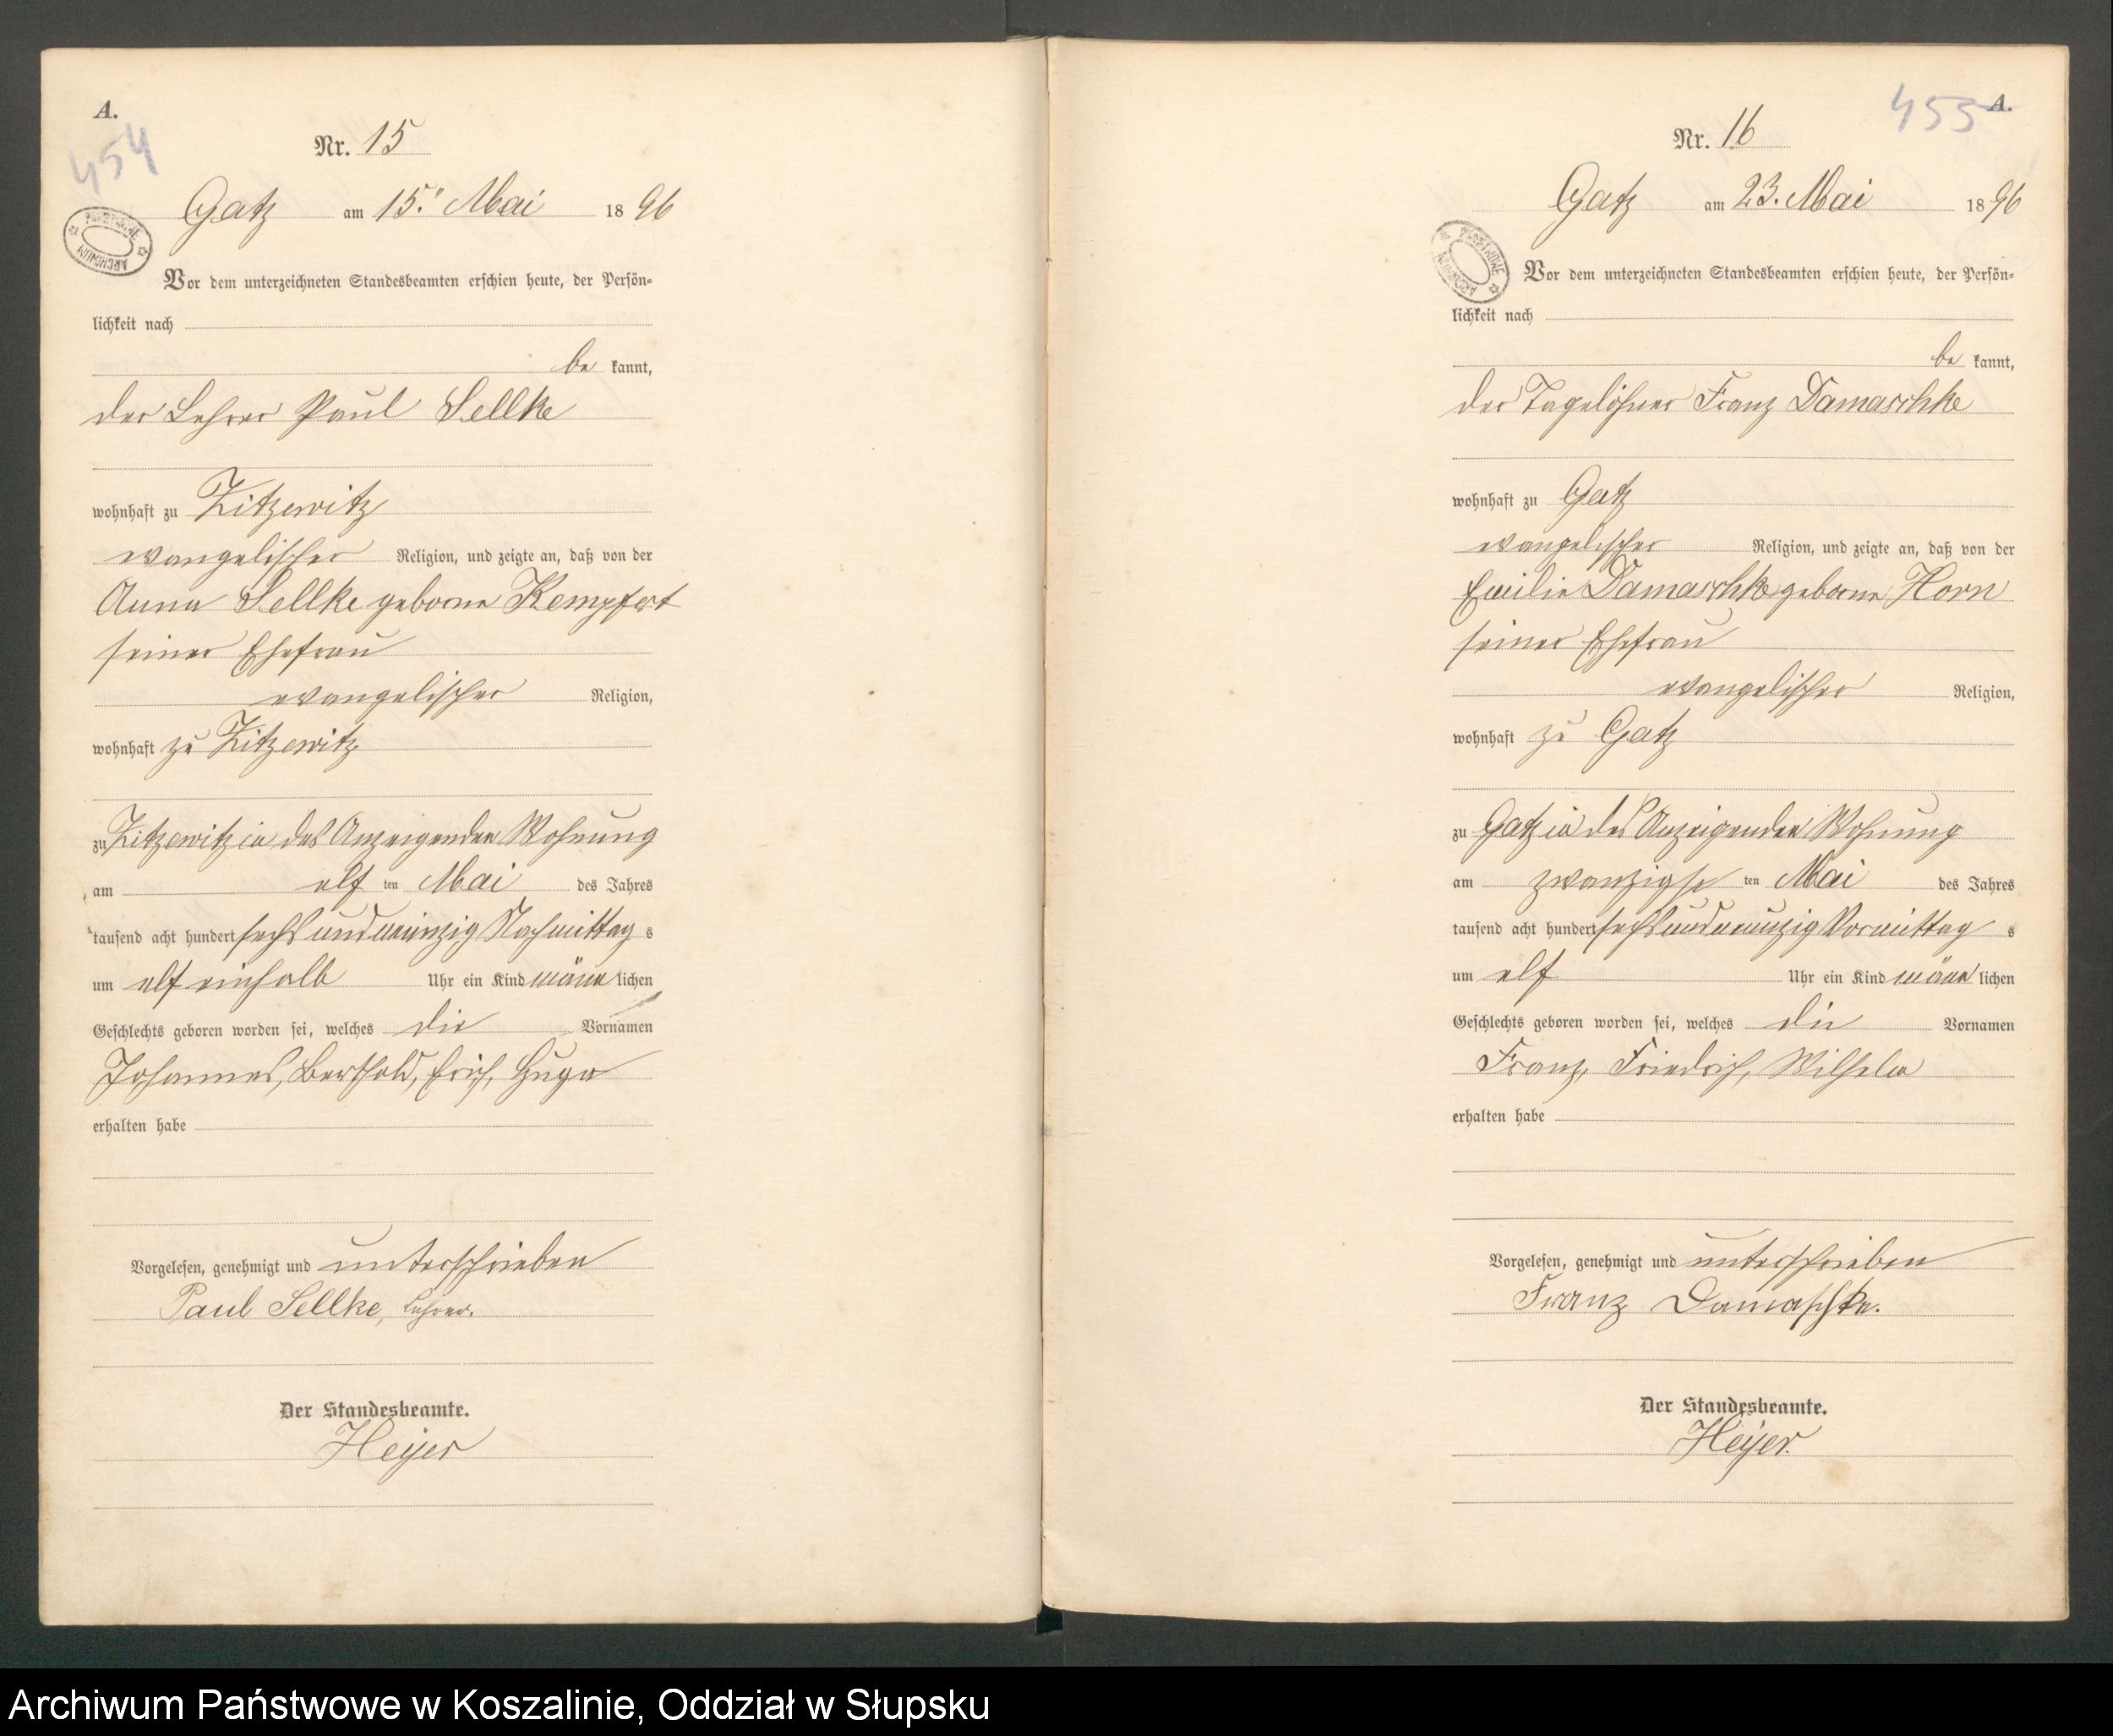 A.
454
Nr. 15
Gatz am 15. Mai 1896
Vor dem unterzeichneten Standesbeamten erschien heute, der Persön-
lichkeit nach
be kannt,
der Lehrer Paul Sellke
wohnhaft zu Zitzewitz
evangelischer Religion, und zeigte an, daß von der
Anna Sellke geborne Kempfert
seiner Ehefrau
evangelischer Religion,
wohnhaft zu Zitzewitz
zu Zitzewitz in des Anzeigenden Wohnung
am elf ten Mai des Jahres
tausend acht hundert sechs und neunzig Nachmittag s
um elf einhalb Uhr ein Kind männ lichen
Geschlechts geboren worden sei, welches die Vornamen
Johannes, Berthold, Erich, Hugo
erhalten habe
Vorgelesen, genehmigt und unterschrieben
Paul Sellke, Lehrer.
Der Standesbeamte.
Heyer
A.
455
Nr. 16
Gatz am 23. Mai 1896
Vor dem unterzeichneten Standesbeamten erschien heute, der Persön-
lichkeit nach
be kannt,
der Tagelöhner Franz Damaschke
wohnhaft zu Gatz
evangelischer Religion, und zeigte an, daß von der
Emilie Damaschke geborne Horn
seiner Ehefrau
evangelischer Religion,
wohnhaft zu Gatz
zu Gatz in des Anzeigenden Wohnung
am zwanzigs ten Mai des Jahres
tausend acht hundert sechs und neunzig Vormittag s
um elf Uhr ein Kind männ lichen
Geschlechts geboren worden sei, welches die Vornamen
Franz, Friedrich, Wilhelm
erhalten habe
Vorgelesen, genehmigt und unterschrieben
Franz Damaschke.
Der Standesbeamte.
Heyer.
Archiwum Państwowe w Koszalinie, Oddział w Słupsku